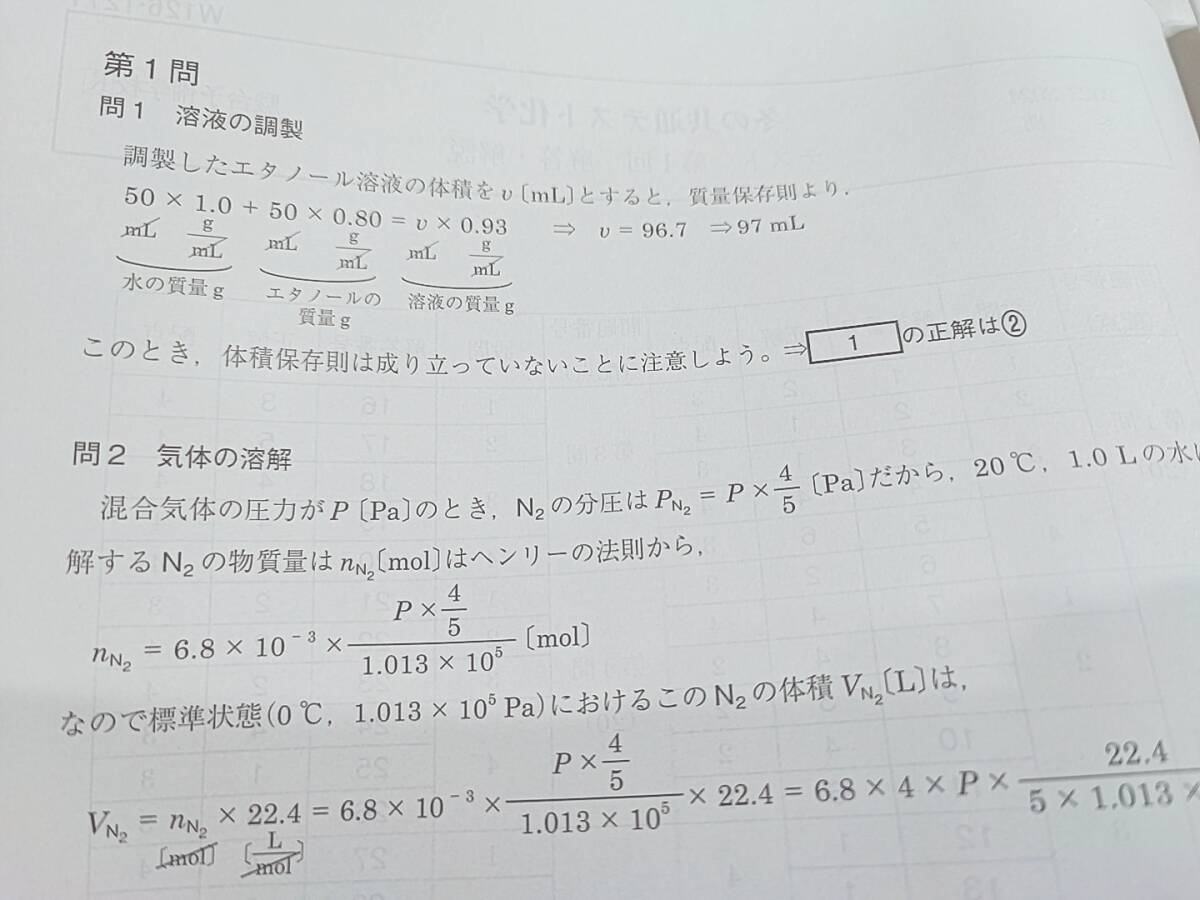 第1問
問1 溶液の調製
調製したエタノール溶液の体積をv〔mL〕とすると，質量保存則より．
50 × 1.0 + 50 × 0.80 = v × 0.93 ⇒ v = 96.7 ⇒ 97 mL
mL g/mL mL g/mL mL g/mL
水の質量g エタノールの質量g 溶液の質量g
このとき，体積保存則は成り立っていないことに注意しよう。⇒ 1 の正解は②
問2 気体の溶解
混合気体の圧力がP〔Pa〕のとき，N₂の分圧はP_N₂ = P × 4/5〔Pa〕だから，20℃，1.0 Lの水に
解するN₂の物質量はn_N₂〔mol〕はヘンリーの法則から，
n_N₂ = 6.8 × 10⁻³ × (P × 4/5)/(1.013 × 10⁵)〔mol〕
なので標準状態(0℃，1.013 × 10⁵ Pa)におけるこのN₂の体積V_N₂〔L〕は，
V_N₂ = n_N₂ × 22.4 = 6.8 × 10⁻³ × (P × 4/5)/(1.013 × 10⁵) × 22.4 = 6.8 × 4 × P × 22.4/(5 × 1.013 ×
〔mol〕 〔L/mol〕